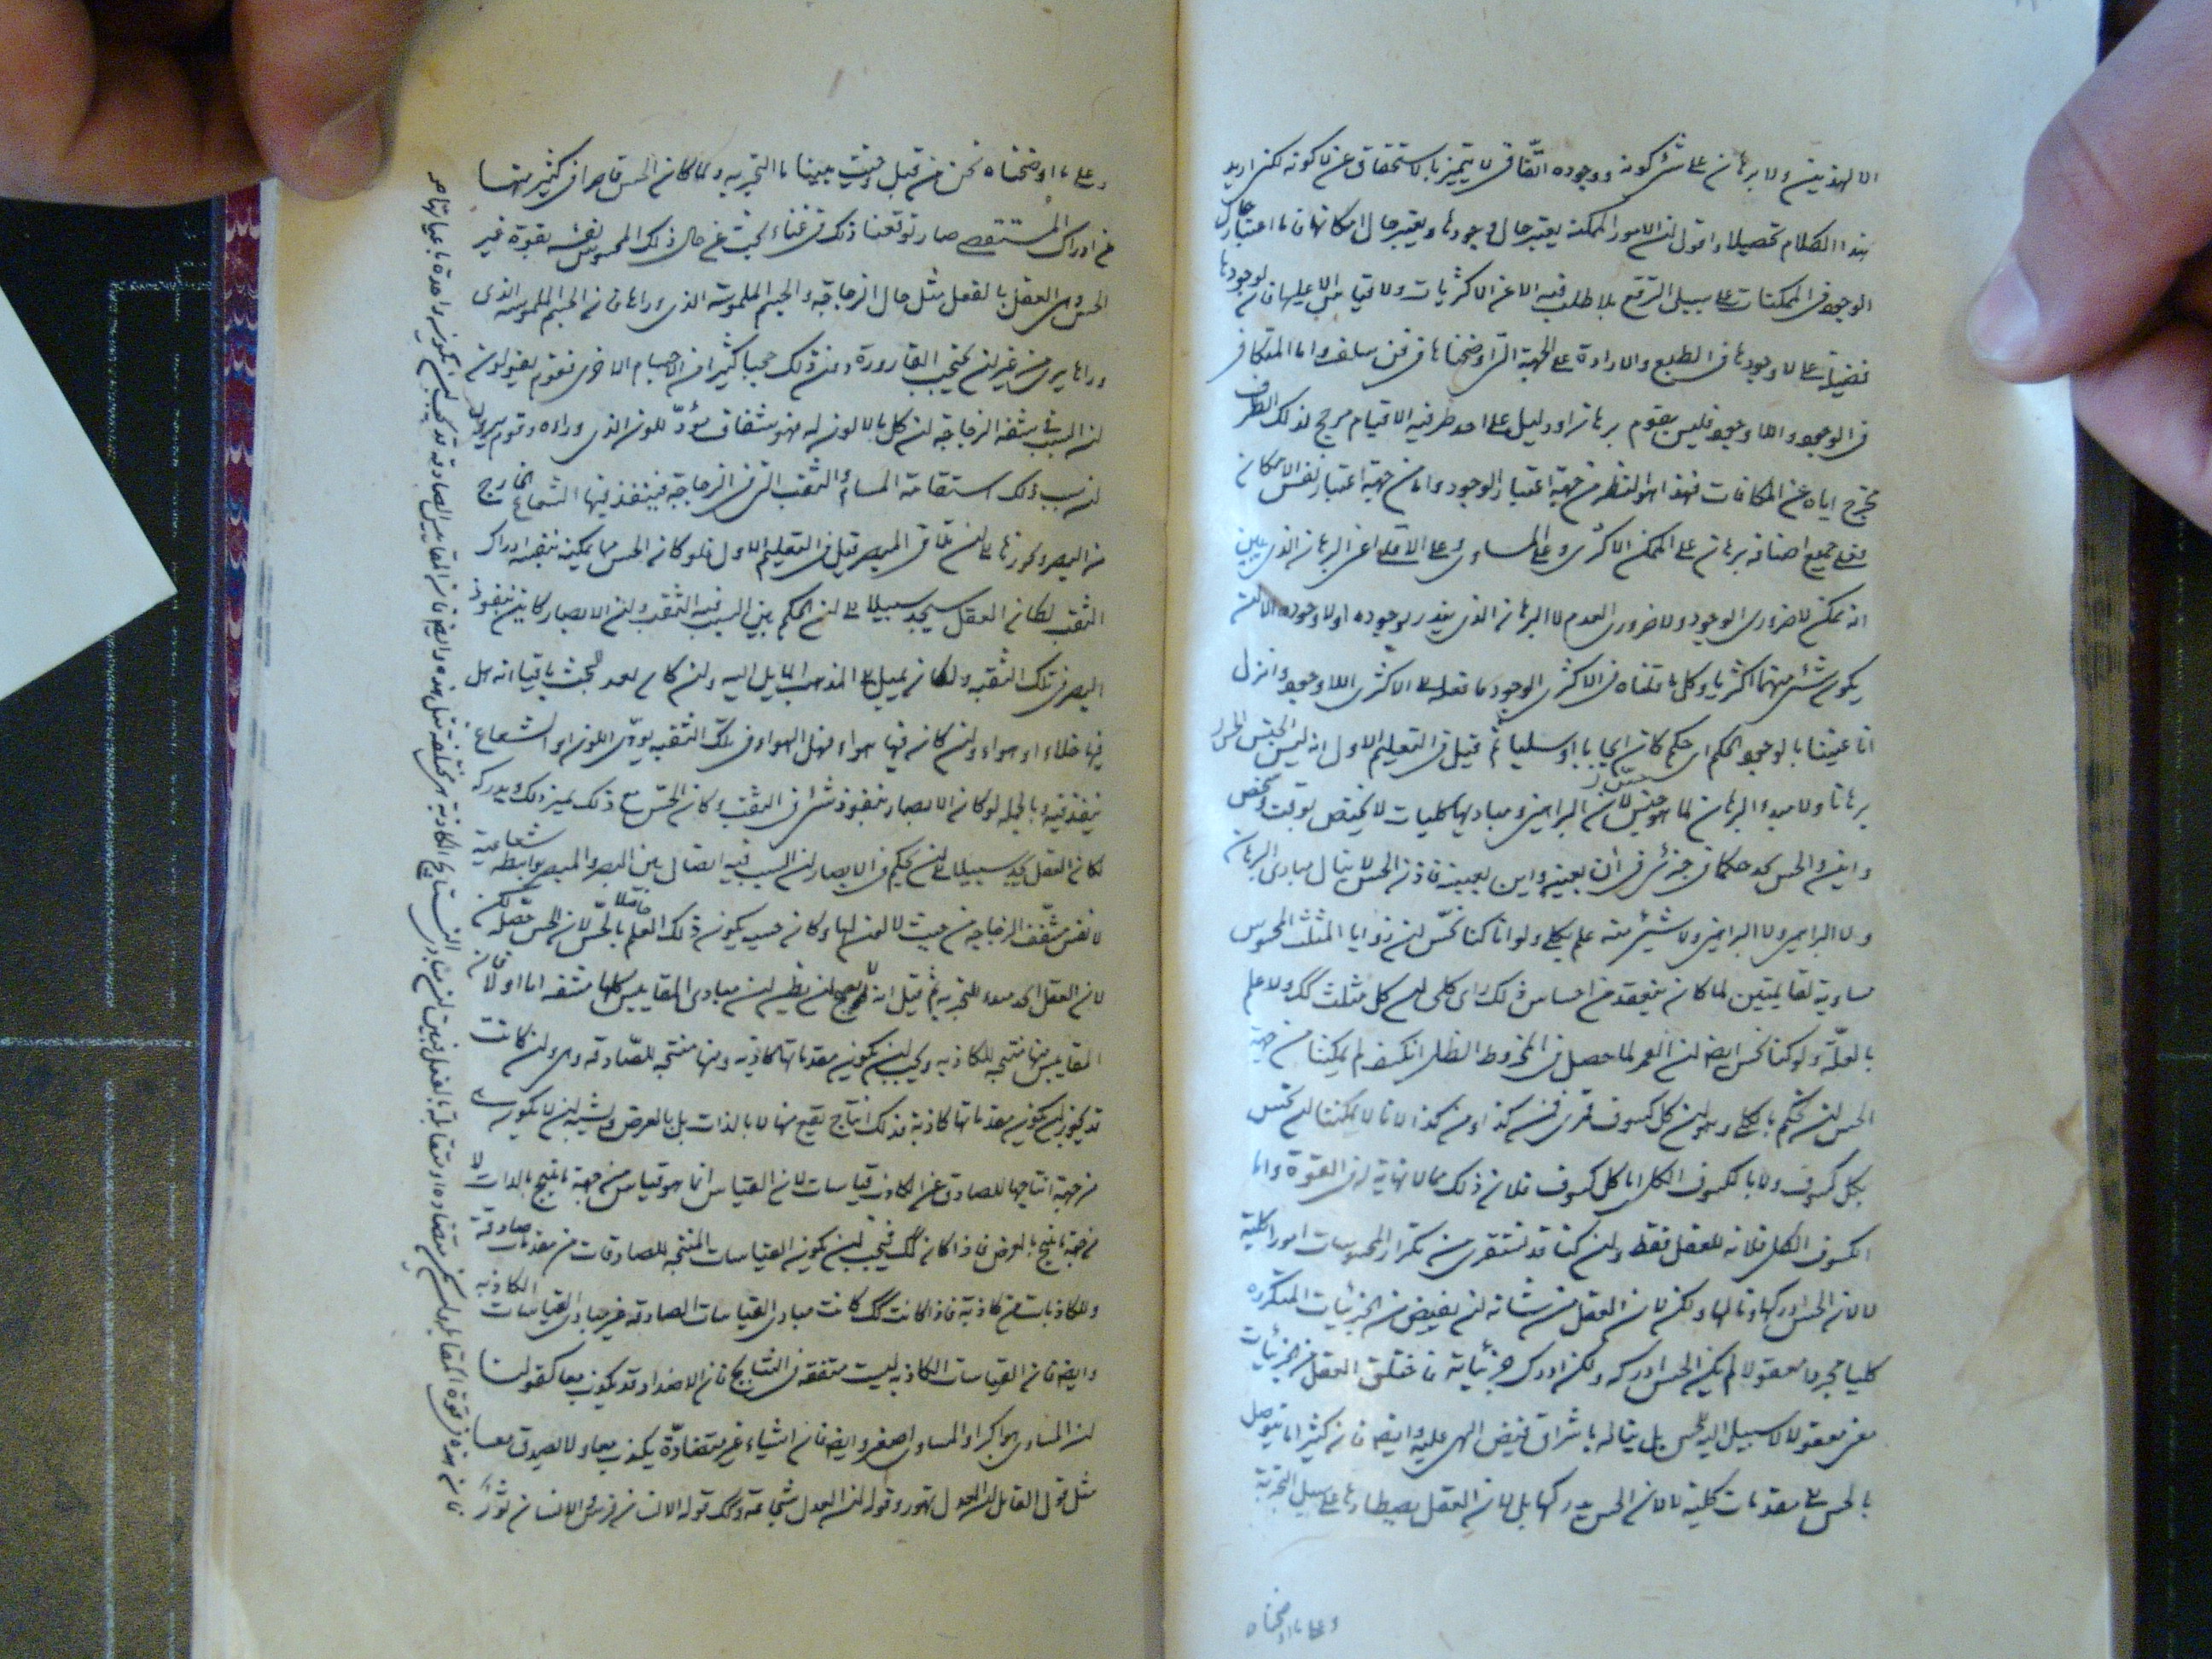 الا لهذين ولا برهان على شئ كونه ووجوده اتّفاقى لا يتميز بالاستحقاق عن لا كونه لكن اريد
هذا الكلام تحصيلا واقول ان الامور الممكنة يعتبر حال وجودها ويعتبر حال امكانها فاما اعتبار حال
الوجود فى الممكنات على سبيل التوقع بلا طلب فيه الا عن الاكثريات ولا قياس الا عليها فان لوجودها
فضيلة على لا وجودها فى الطبع والارادة على الجهة التى اوضحناها فى فن سلف واما المتكافى
فى الوجود واللاوجود فليس يقوم برهان او دليل على احد طرفيه الا قيام مرجح لذلك الطرف
مخرج اياه عن المكافات فهذا هو النظر من جهة اعتبار الوجود واما من جهة اعتبار نفس الامكان
فعلى جميع اصنافه برهان على الممكن الاكثرى وعلى المساوى وعلى الاقلى اعنى البرهان الذى يبين
انه ممكن لا ضرورى الوجود ولا ضرورى العدم لا البرهان الذى ينذر بوجوده او لا وجوده الا ان
يكون شئ منهما اكثريا وكل ما قلناه فى الاكثرى الوجود فانقله الى الاكثرى اللاوجود وانزل
انا عنينا بالوجود الحكم اى حكم كان ايجابا او سلبا ثم قيل فى التعليم الاول انه ليس الحس
برهانا ولا مبدء البرهان لما هو حس لان البراهين ومباديها كليات لا يختص بوقت وشخص
واين والحس يجد حكما فى جزئى فى آن بعينه واين بعينه فاذن الحس لا ينال مبادى البرهان
ولا البراهين ولا شئ منه علم بكلى ولو انا كنا نحسّ ان زوايا المثلث المحسوس
مساوية لقائمتين لما كان ينعقد من احساس ذلك راى كلى ان كل مثلث كك ولا علم
بالعلّة ولو كنا نحس ايضا ان القمر لما حصل فى المخروط الظلى انكسف لم يمكننا من جهة
الحس ان نحكم بالكلى وهو ان كل كسوف قمرى فمن كذا او من كذا لانا لا يمكننا ان نحس
بكل كسوف ولا بالكسوف الكلى اما كل كسوف فلان ذلك مما لا نهاية له فى القوة واما
الكسوف الكلى فلانه للعقل فقط وان كنا قد نستقرى من تكرار المحسوسات امورا كلية
لا لان الحس ادركها ونالها ولكن لان العقل من شانه ان يقبض من الجزئيات المتكررة
كليا مجردا معقولا لم يكن الحس ادركه ولكن ادرك جزئياته فاختلق العقل من الجزئيات
معنى معقولا لا سبيل اليه للحس بل يناله باشراق فيض الهى عليه وايضا فان كثيرا ما نتوصل
بالحس الى مقدمات كلية لا لان الحس يدركها بل لان العقل يصطادها على سبيل التجربة
وعلى ما اوضحناه
وعلى ما اوضحناه نحن من قبل وحيث بينا ما التجربة ولما كان الحس قاصرا فى كثير منها
عن ادراك المستقصى صار توقعنا ذلك فى غناء بحث عن حال ذلك المحسوس نفسه بقوة غير
الحس وهى العقل بالفعل مثل حال الزجاجة والجسم الملموسة الذى وراها فان الجسم الملموسة الذى
وراها يرى من غير ان يحجب القارورة دون ذلك حجبا كثيرا من الاجسام الاخرى فقوم يقولون
ان السبب شفه الزجاجة ان كل ما لا لون له فهو مشفاف مؤدّ للون الذى وراءه وقوم يرون
ان سبب ذلك استقامة المسام والثقب التى فى الزجاجة فينفذ فيها الشعاع الخارج
من البصر وبحوزها الى ان تلاقى المبصر قيل فى التعليم الاول فلو كان الحس مما يمكنه بنفسه ادراك
الثقب لكان العقل سيجد سبيلا الى ان يحكم بان السبب فيه الثقب وان الابصار كاين بنفوذ
البصر فى تلك الثقبة ولكان يميل الى المذهب المايل اليه وان كان بعد البحث باقيا انه هل
فيها خلاء او هواء وان كان فيها هواء فهل الهواء فى تلك الثقبة يؤدّى اللون او الشعاع
ينفذ فيه وبالجملة لو كان الابصار بنفوذ شئ فى الثقب وكان الحسّ مع ذلك يميز ذلك ويدركه
لكان العقل يجد سبيلا الى ان يحكم فى الابصار ان السبب فيه اتصال بين البصر والمبصر بواسطة شعاعية
لا نفس مشفّف الزجاجة من حيث لا لون لها وكان حينئذ يكون ذلك العلم بالحسّ حاصلا لا لان الحس حصّله لكن
لان العقل اتخذ مبدء للتجربة ثم قيل انه لا يجوز ان يظن ان مبادى المقاييس كلها متفقة اما اولا فان
المقاييس منها منتجة للكاذبة ويجب ان يكون مقدماتها كاذبة ومنها منتجة للصّادقة وهى وان كانت
قد يجوز ان يكون مقدماتها كاذبة فذلك انتاج يقع منها لا بالذات بل بالعرض وليشبه ان لا يكون
من جهة انتاجها للصادق عن الكاذب قياسات لان القياس انما هو قياس من جهة ما ينتج بالذات لا
من جهة ما ينتج بالعرض فاذا كان كك فيجب ان يكون القياسات المنتجة للصادقات من مقدمات صادقة
وللكاذبات من كاذبة فاذا كانت كك كانت مبادى القياسات الصادقة غير مبادى القياسات الكاذبة
وايضا فان القياسات الكاذبة ليست متفقة فى النتايج فان الاضداد قد يكون معا كقولنا
ان المساوى هو اكبر او المساوى اصغر وايضا فان اشياء غير متضادّة يكذب معا ولا يصدق معا
مثل قول القايل ان العدل تهور وقوله ان العدل شجاعة وكك قوله الانسان فرس والانسان ثور